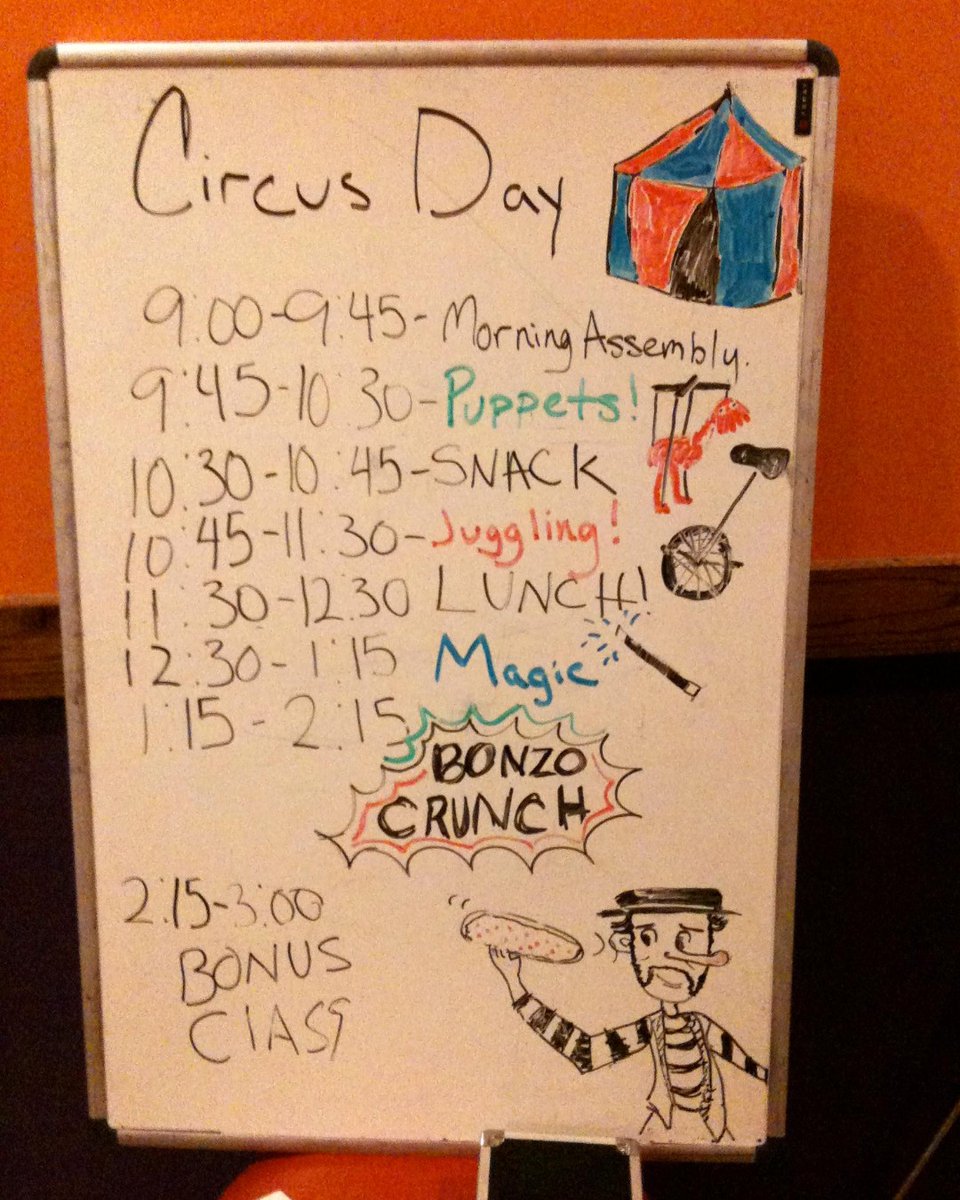 Circus Day
9:00-9:45- Morning Assembly.
9:45-10:30- Puppets!
10:30-10:45-SNACK
10:45-11:30-Juggling!
11:30-12:30 LUNCH!
12:30-1:15 Magic
1:15-2:15
BONZO
CRUNCH
2:15-3:00
BONUS
ClASS